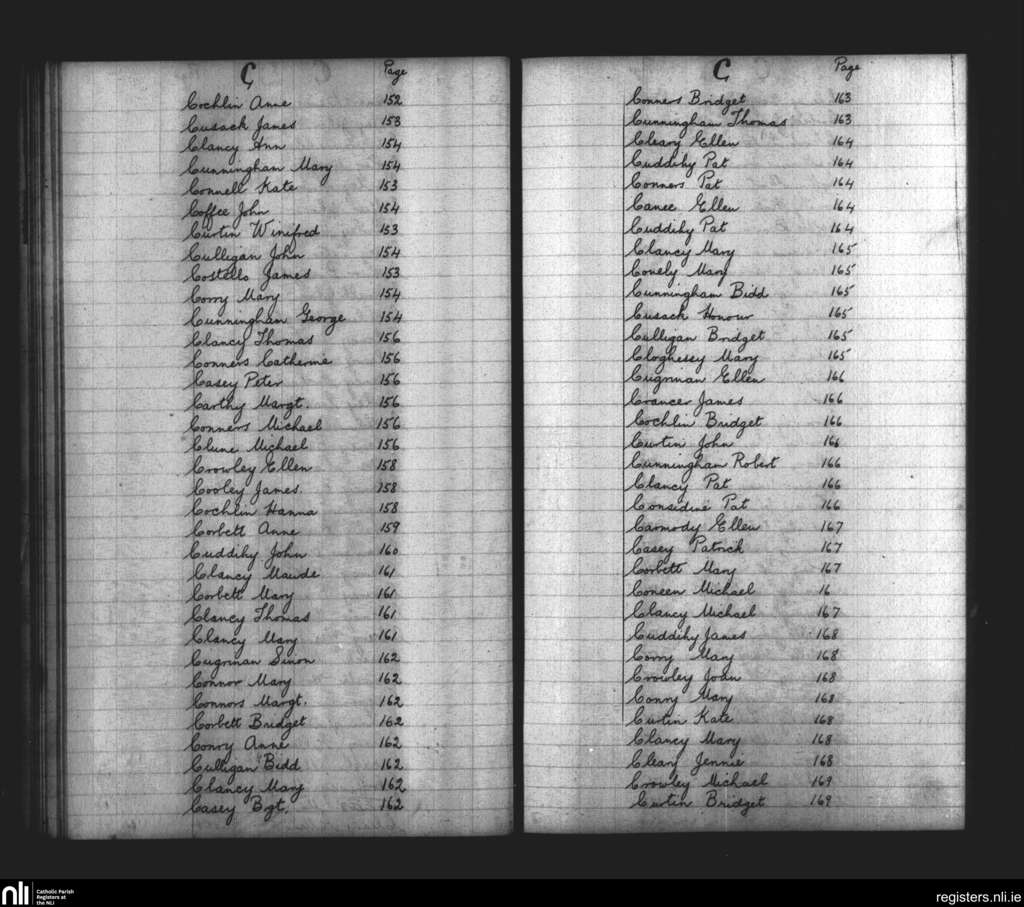 C
Page
Cochlin Anne 152
Cusack James 153
Clancy Ann 154
Cunningham Mary 154
Connell Kate 153
Coffee John 154
Curtin Winifred 153
Culligan John 154
Costello James 153
Corry Mary 154
Cunningham George 154
Clancy Thomas 156
Conners Catherine 156
Casey Peter 156
Carthy Margt. 156
Conners Michael 156
Clune Michael 156
Crowley Ellen 158
Cooley James. 158
Cochlin Hanna 158
Corbett Anne 159
Cuddihy John 160
Clancy Maude 161
Corbett Mary 161
Clancy Thomas 161
Clancy Mary 161
Cugrinan Sinon 162
Connor Mary 162
Connors Margt. 162
Corbett Bridget 162
Conry Anne 162
Culligan Bidd 162
Clancy Mary 162
Casey Bgt. 162
C
Page
Conners Bridget 163
Cunningham Thomas 163
Cleary Ellen 164
Cuddihy Pat 164
Conners Pat 164
Canee Ellen 164
Cuddihy Pat 164
Clancy Mary 165
Conely Mary 165
Cunningham Bidd 165
Cusack Honour 165
Culligan Bridget 165
Cloghessy Mary 165
Cugrinan Ellen 166
Crancer James 166
Cochlin Bridget 166
Curtin John 166
Cunningham Robert 166
Clancy Pat 166
Considine Pat 166
Carmody Ellen 167
Casey Patrick 167
Corbett Mary 167
Coneen Michael 16
Clancy Michael 167
Cuddihy James 168
Corry Mary 168
Crowley Joan 168
Conry Mary 168
Curtin Kate 168
Clancy Mary 168
Cleary Jennie 168
Crowley Michael 169
Curtin Bridget 169
nli
Catholic Parish
Registers at
the NLI
registers.nli.ie